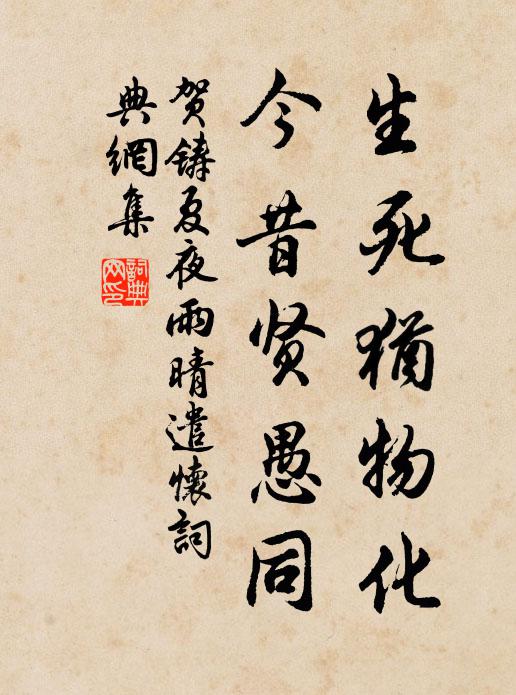 生死猶物化
今昔贤愚同
贺鑄夏夜雨晴遣懷詞
典網集
詞典
网印